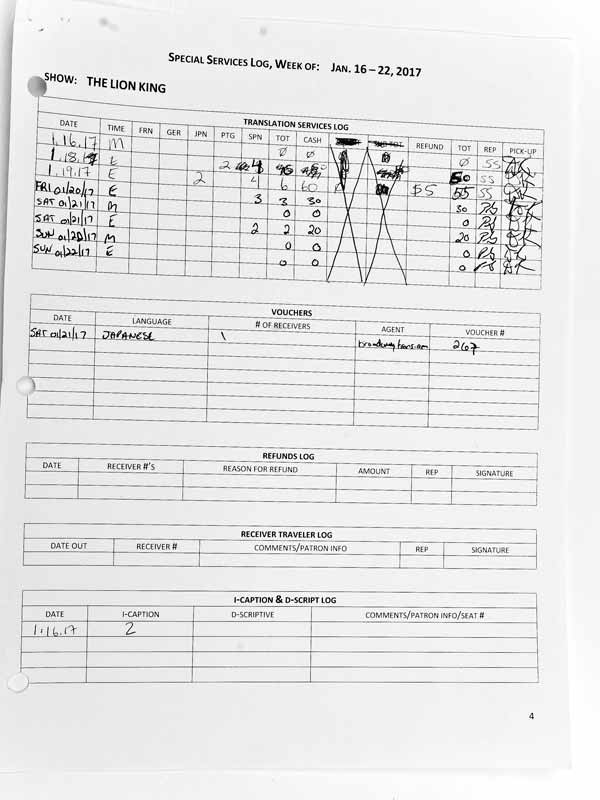 SPECIAL SERVICES LOG, WEEK OF: JAN. 16 – 22, 2017
SHOW: THE LION KING
TRANSLATION SERVICES LOG
DATE TIME FRN GER JPN PTG SPN TOT CASH REFUND TOT REP PICK-UP
1.16.17 M Ø Ø Ø SS
1.18.17 E 2 50 SS
1.19.17 E 2 4 6 60 $5 55 SS
FRI 01/20/17 E 3 3 30 30 PS
SAT 01/21/17 M 0 0 0 PS
SAT 01/21/17 E 2 2 20 20 PS
SUN 01/22/17 M 0 0 0 PS
SUN 01/22/17 E 0 0 0 PS
VOUCHERS
DATE LANGUAGE # OF RECEIVERS AGENT VOUCHER #
SAT 01/21/17 JAPANESE 1 267
REFUNDS LOG
DATE RECEIVER #'S REASON FOR REFUND AMOUNT REP SIGNATURE
RECEIVER TRAVELER LOG
DATE OUT RECEIVER # COMMENTS/PATRON INFO REP SIGNATURE
I-CAPTION & D-SCRIPT LOG
DATE I-CAPTION D-SCRIPTIVE COMMENTS/PATRON INFO/SEAT #
1.16.17 2
4